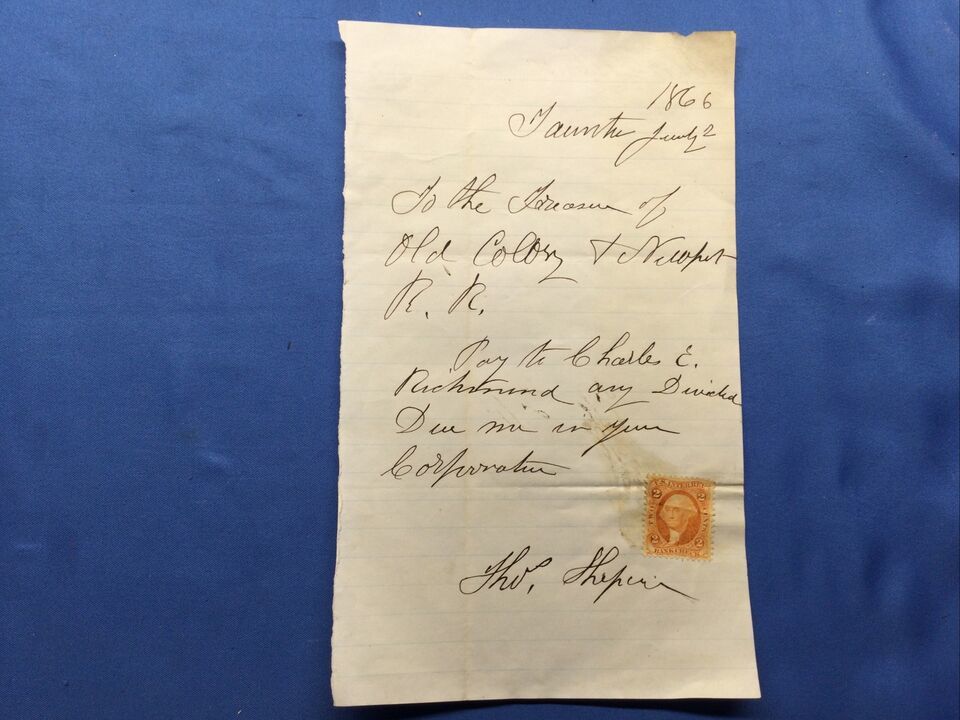 1866
Taunton July 2
To the Treasurer of
Old Colony & Newport
R. R.
Pay to Charles E.
Richmond any Dividend
Due me in your
Corporation
U.S. INTER. REV.
2 2
TWO CENTS
2 2
BANK CHECK
Thos.